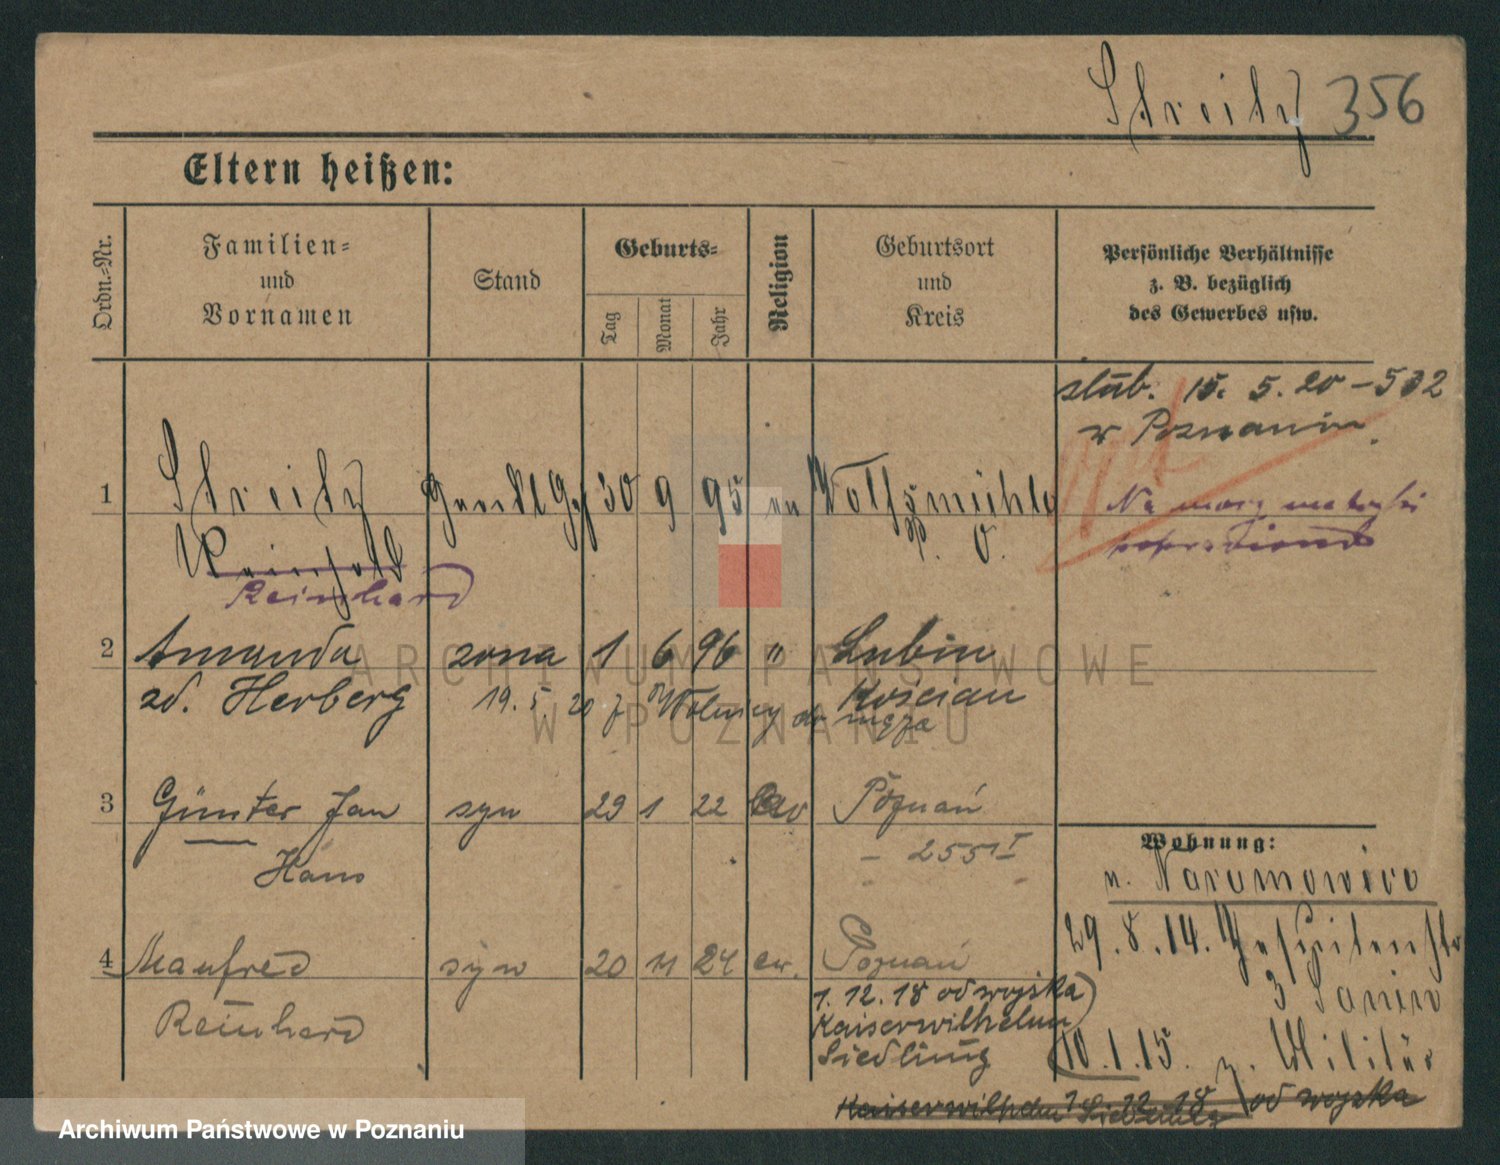 Streitz 356
Eltern heißen:
Ordn.-Nr.
Familien-
und
Vornamen
Stand
Geburts-
Tag
Monat
Jahr
Religion
Geburtsort
und
Kreis
Persönliche Verhältnisse
z. B. bezüglich
des Gewerbes usw.
ślub. 15. 5. 20 – 532
w Poznaniu
1 Streitz 30 9 95 ev Wolfsmühle
Reinhold
Reinhard
Na mocy metryki
2 Amanda żona 1 6 96 " Lubin
zd. Herberg Kościan
19. 5 20 z Wolnicy do męża
3 Günter Jan syn 29 1 22 ev Poznań
– 255 I –
Hans
Wohnung:
n. Naramowice
29. 8. 14. Jesuitenstr
3
4 Manfred syn 20 11 24 ew. Poznań
Reinhard
1. 12. 18 od wojska
Kaiserwilhelm
Siedlung
10. 1. 15. z. Militär
Kaiserwilhelm Siedlung 1 12 18 od wojska
ARCHIWUM PAŃSTWOWE
W POZNANIU
Archiwum Państwowe w Poznaniu